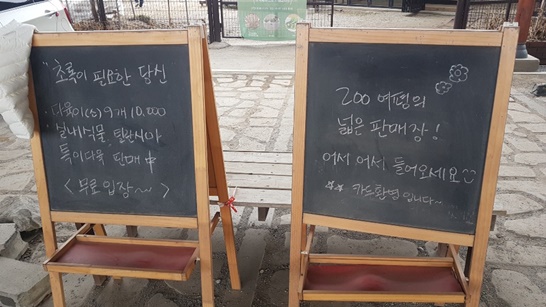 "초록이 필요한 당신
다육이(소) 9개 10,000
실내식물, 틸란시아
특이다육 판매中
<무료입장~>
200 여평의
넓은 판매장!
어서 어서 들어오세요
카드환영입니다~